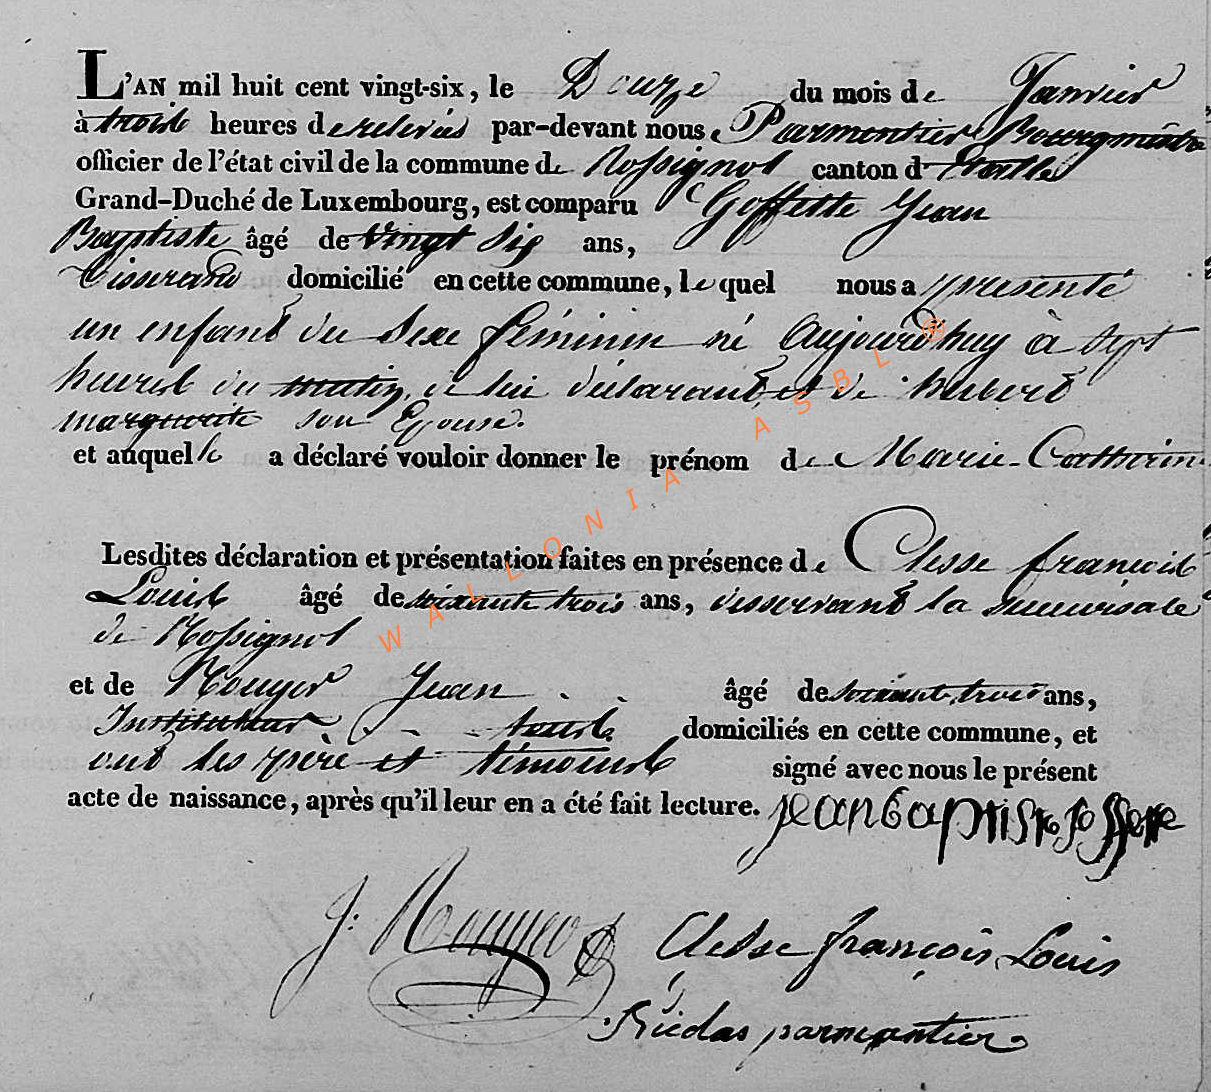 L'AN mil huit cent vingt-six, le Douze du mois de Janvier
à trois heures de relevés par-devant nous Parmentier Bourgmestre
officier de l'état civil de la commune de Rossignol canton d'Etalle
Grand-Duché de Luxembourg, est comparu Goffette Jean
Baptiste âgé de vingt Six ans,
Tisserand domicilié en cette commune, lequel nous a présenté
un enfant du Sexe féminin né Aujourdhuy à Sept
heures du matin, de lui déclarant et de hubert
marguerite son Epouse.
et auquelle a déclaré vouloir donner le prénom de Marie-Catherine
Lesdites déclaration et présentation faites en présence de Clesse françois
Louis âgé de soixante trois ans, desservant la succursale
de Rossignol
et de Rouyer Jean âgé de soixante trois ans,
Instituteur tous domiciliés en cette commune, et
ont les père et témoins signé avec nous le présent
acte de naissance, après qu'il leur en a été fait lecture. jean baptiste goffette
J: Rouyer Clesse françois Louis
Nicolas parmentier
WALLONIA ASBL ®